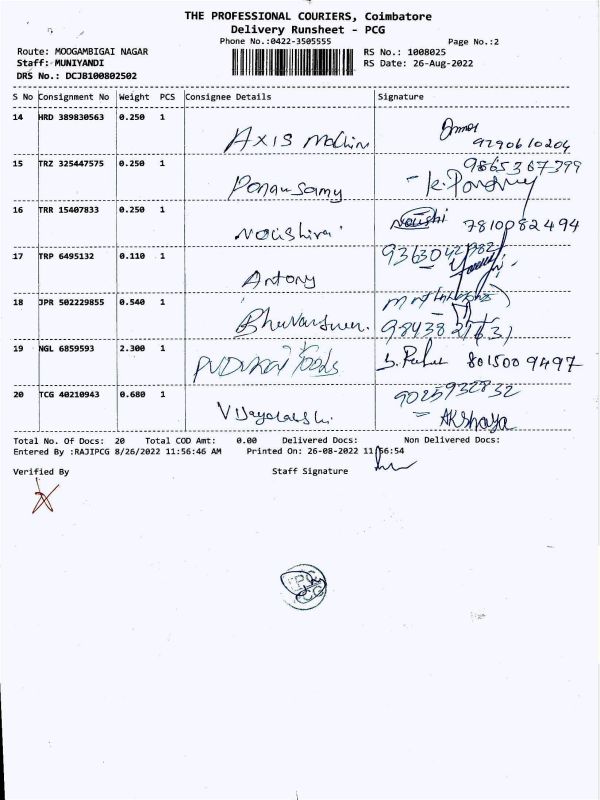 THE PROFESSIONAL COURIERS, Coimbatore
Delivery Runsheet - PCG
Phone No.:0422-3505555 Page No.:2
Route: MOOGAMBIGAI NAGAR RS No.: 1008025
Staff: MUNIYANDI RS Date: 26-Aug-2022
DRS No.: DCJB100802502
S No Consignment No Weight PCS Consignee Details Signature
14 HRD 389830563 0.250 1
Axis 9290610204
15 TRZ 325447575 0.250 1 9865367399
Ponnusamy
16 TRR 15407833 0.250 1 Noushi 7810082494
Noushira
17 TRP 6495132 0.110 1
Antony
18 JPR 502229855 0.540 1
19 NGL 6859593 2.300 1
Foods 8015009497
20 TCG 40210943 0.680 1 9025932832
Vijayalakshi Akshaya
Total No. Of Docs: 20 Total COD Amt: 0.00 Delivered Docs: Non Delivered Docs:
Entered By :RAJIPCG 8/26/2022 11:56:46 AM Printed On: 26-08-2022 11:56:54
Verified By Staff Signature